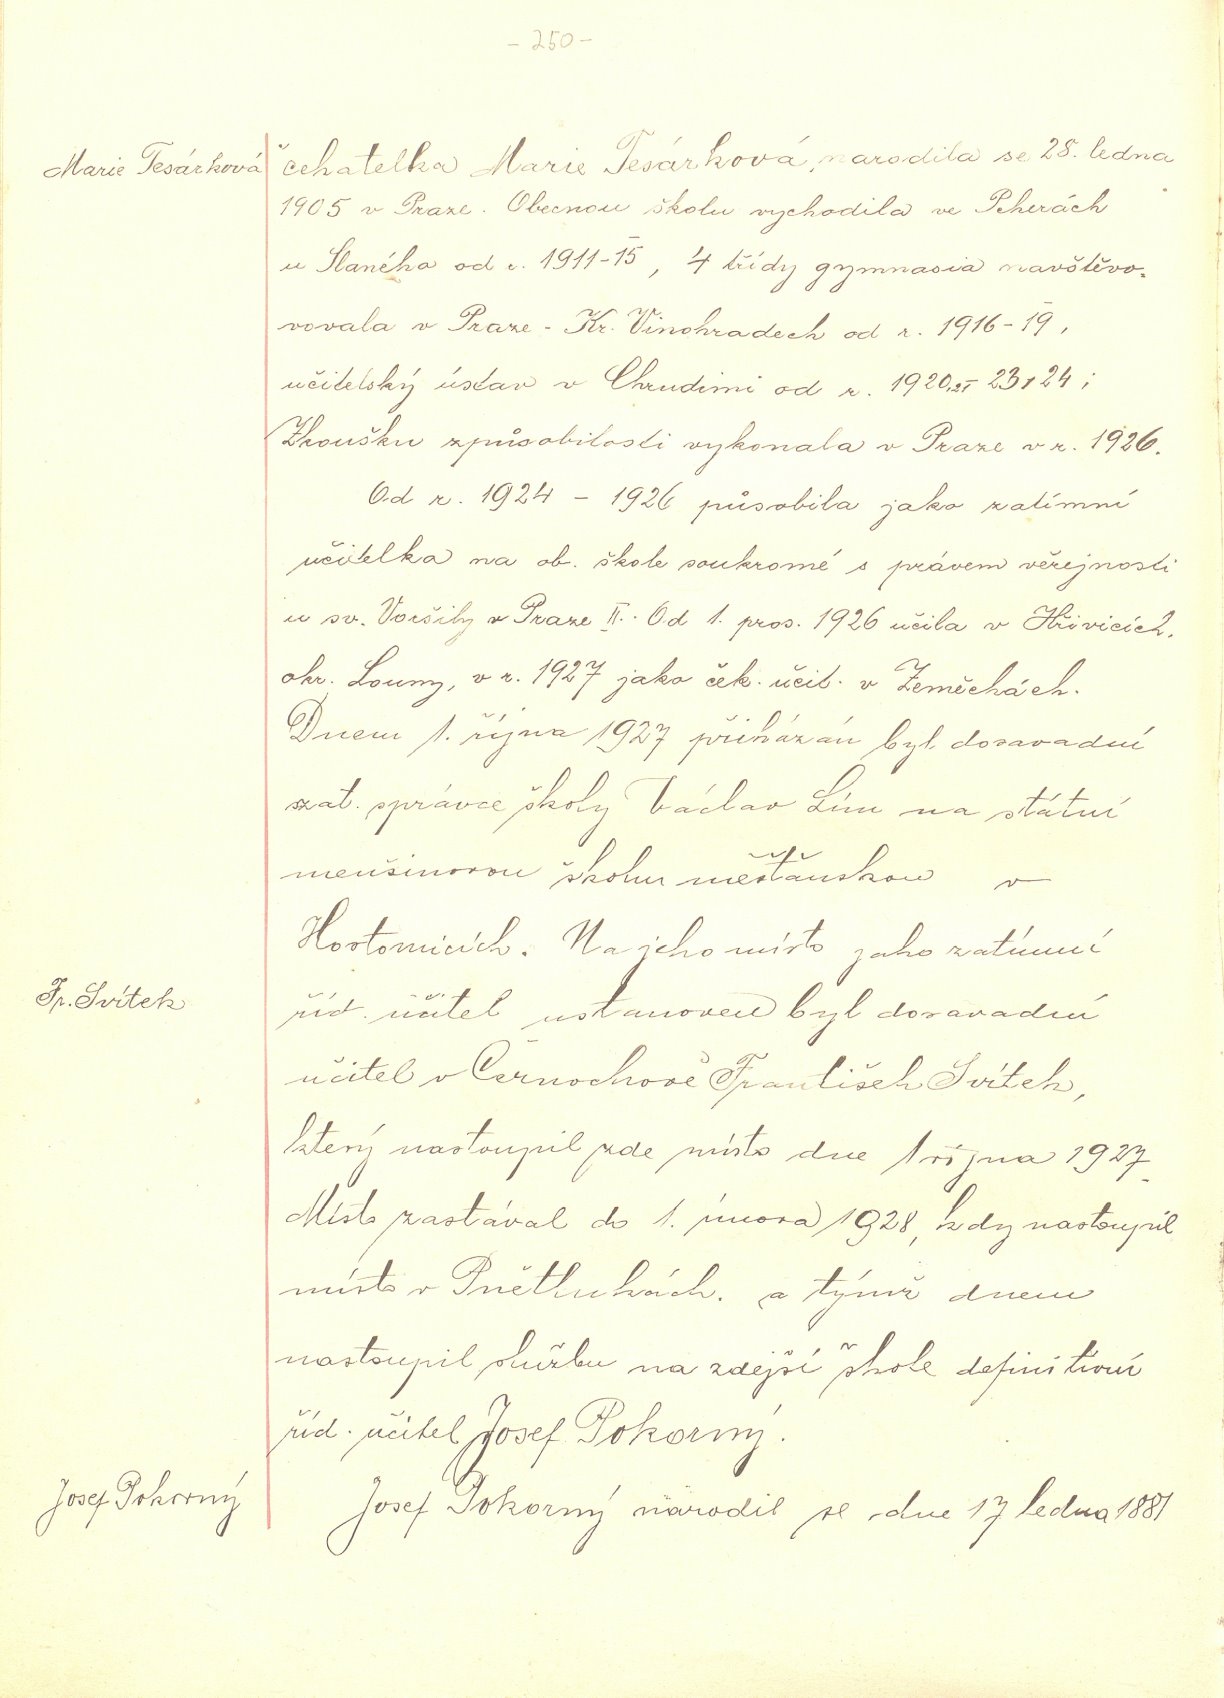 - 250 -
Marie Tesárková
čekatelka Marie Tesárková, narodila se 28. ledna
1905 v Praze. Obecnou školu vychodila ve Pcherách
u Slaného od r. 1911-15, 4 třídy gymnasia navštěvo-
vovala v Praze - Kr. Vinohradech od r. 1916-19,
učitelský ústav v Chrudimi od r. 1920, 23, 24;
Zkoušku způsobilosti vykonala v Praze v r. 1926.
Od r. 1924 - 1926 působila jako zatímní
učitelka na ob. škole soukromé s právem veřejnosti
u sv. Voršily v Praze II. Od 1. pros. 1926 učila v Hřivicích.
okr. Louny, v r. 1927 jako ček. učit. v Zeměchách.
Dnem 1. října 1927 přikázán byl dosavadní
zat. správce školy Václav Lím na státní
menšinovou školu měšťanskou v
Hostomicích. Na jeho místo jako zatímní
Fr. Svítek
říd. učitel ustanoven byl dosavadní
učitel v Černochově František Svítek,
který nastoupil zde místo dne 1 října 1927
Místo zastával do 1. února 1928, kdy nastoupil
místo v Pnětlukách. a týmž dnem
nastoupil službu na zdejší škole definitivní
říd. učitel Josef Pokorný.
Josef Pokorný
Josef Pokorný narodil se dne 17 ledna 1881